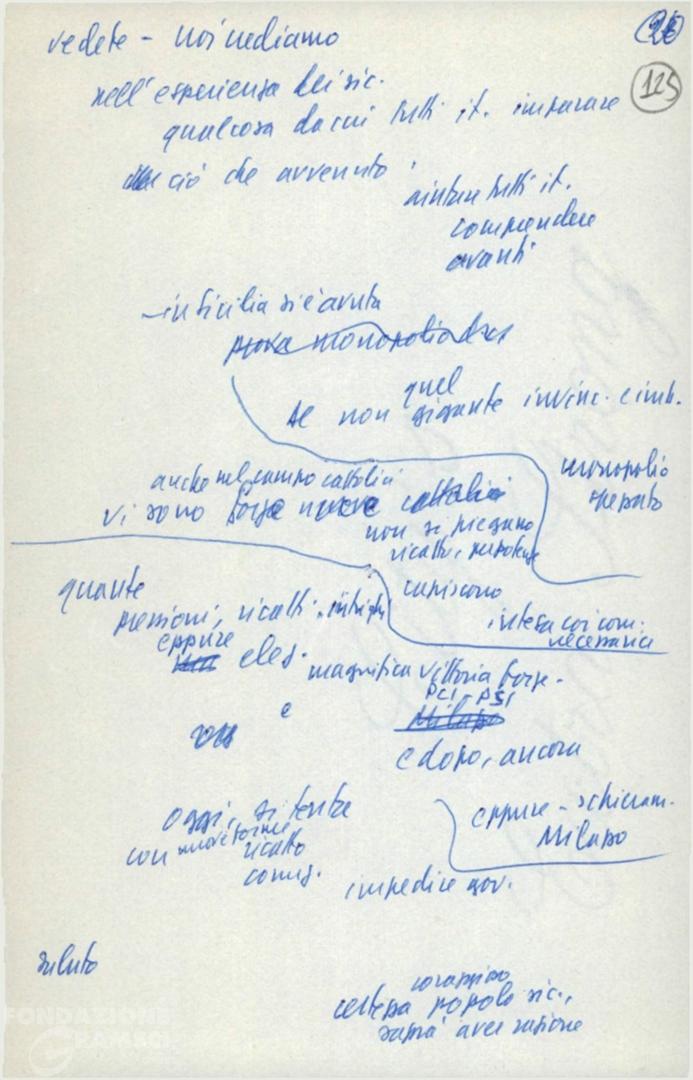 vedete - noi vediamo
26
125
nell'esperienza dei sic.
qualcosa da cui tutti it. imparare
ciò che avvenuto
aiutare tutti it.
comprendere
avanti
- in Sicilia si è avuta
prova monopolio
se non quel gigante invinc. e imb.
monopolio
spezzato
anche nel campo cattolici
vi sono forze nuove cattolici
non si piegano
ricatti, prepotenze
capiscono
intesa coi com.
necessaria
quante
pressioni, ricatti, intrighi
eppure
elez.
magnifica vittoria forze
PCI-PSI
Milazzo
e
e dopo, ancora
oggi, si tenta
con nuove forme
ricatto
comis.
eppure - schieram.
Milazzo
impedire gov.
saluto
coraggioso
certezza popolo sic.,
saprà aver ragione
FONDAZIONE
GRAMSCI